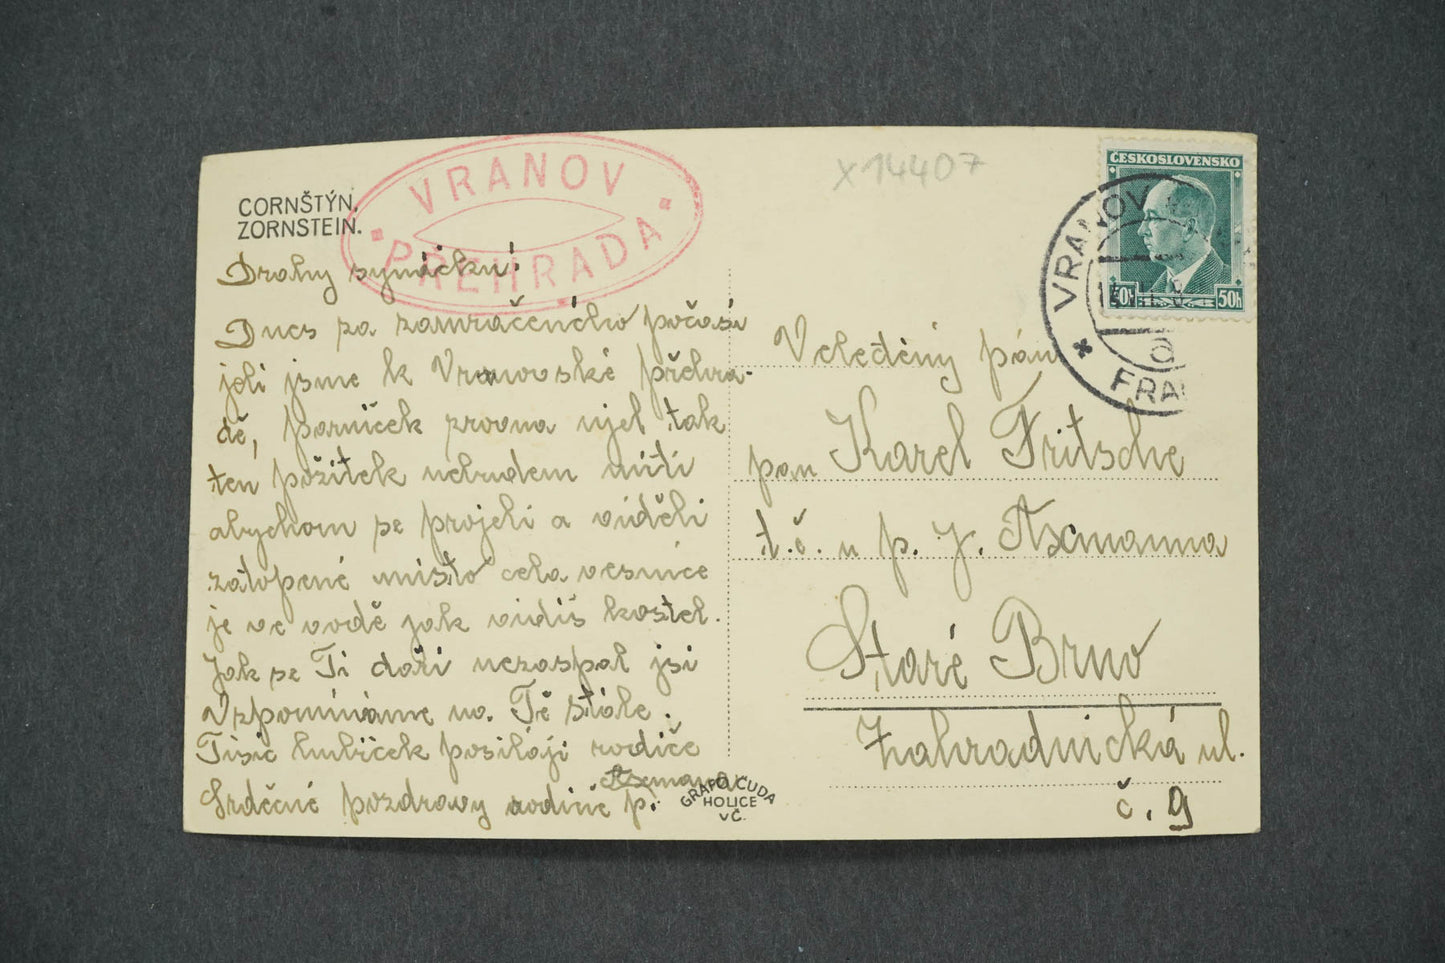 CORNŠTÝN.
ZORNSTEIN.
VRANOV
PŘEHRADA
X14407
ČESKOSLOVENSKO
50h 50h
VRANOV
FRA
a
Drahý synáčku!
Dnes za zamračeného počasí
jeli jsme k Vranovské přehra-
dě, parníček zrovna ujel tak
ten požitek nebudem míti
abychom se projeli a viděli
zatopené místo cela vesnice
je ve vodě jak vidíš kostel.
Jak se Ti daří nezaspal jsi
Vzpomínáme na Tě stále.
Tisíc hubiček posílají rodiče
Srdečné pozdravy rodině p. Axmanově
GRAFO ČUDA
HOLICE
VČ.
Veleděný pán
pan Karel Fritsche
t.č. u p. J. Axmanna
Staré Brno
Zahradnická ul.
č. 9